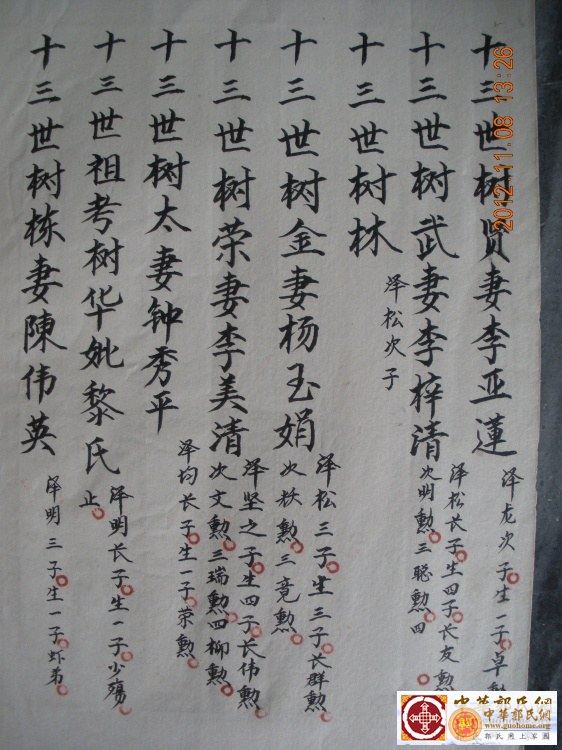 十三世树贤妻李亚蓮
泽龙次子生一子卓
十三世树武妻李梓清
泽松长子生四子长友勲
次明勲三聪勲四
十三世树林
泽松次子
十三世树金妻杨玉娟
泽松三子生三子长群勲
次秋勲三竟勲
十三世树荣妻李美清
泽坚之子生四子长伟勲
次文勲三瑞勲四柳勲
十三世树太妻钟秀平
泽均长子生一子荣勲
十三世祖考树华妣黎氏
泽明长子生一子少殤
止
十三世树栋妻陳伟英
泽明三子生一子虾弟
2012.11.08 13:26
中華郭氏網
中華郭氏網
www.guohome.org
郭氏网上家園